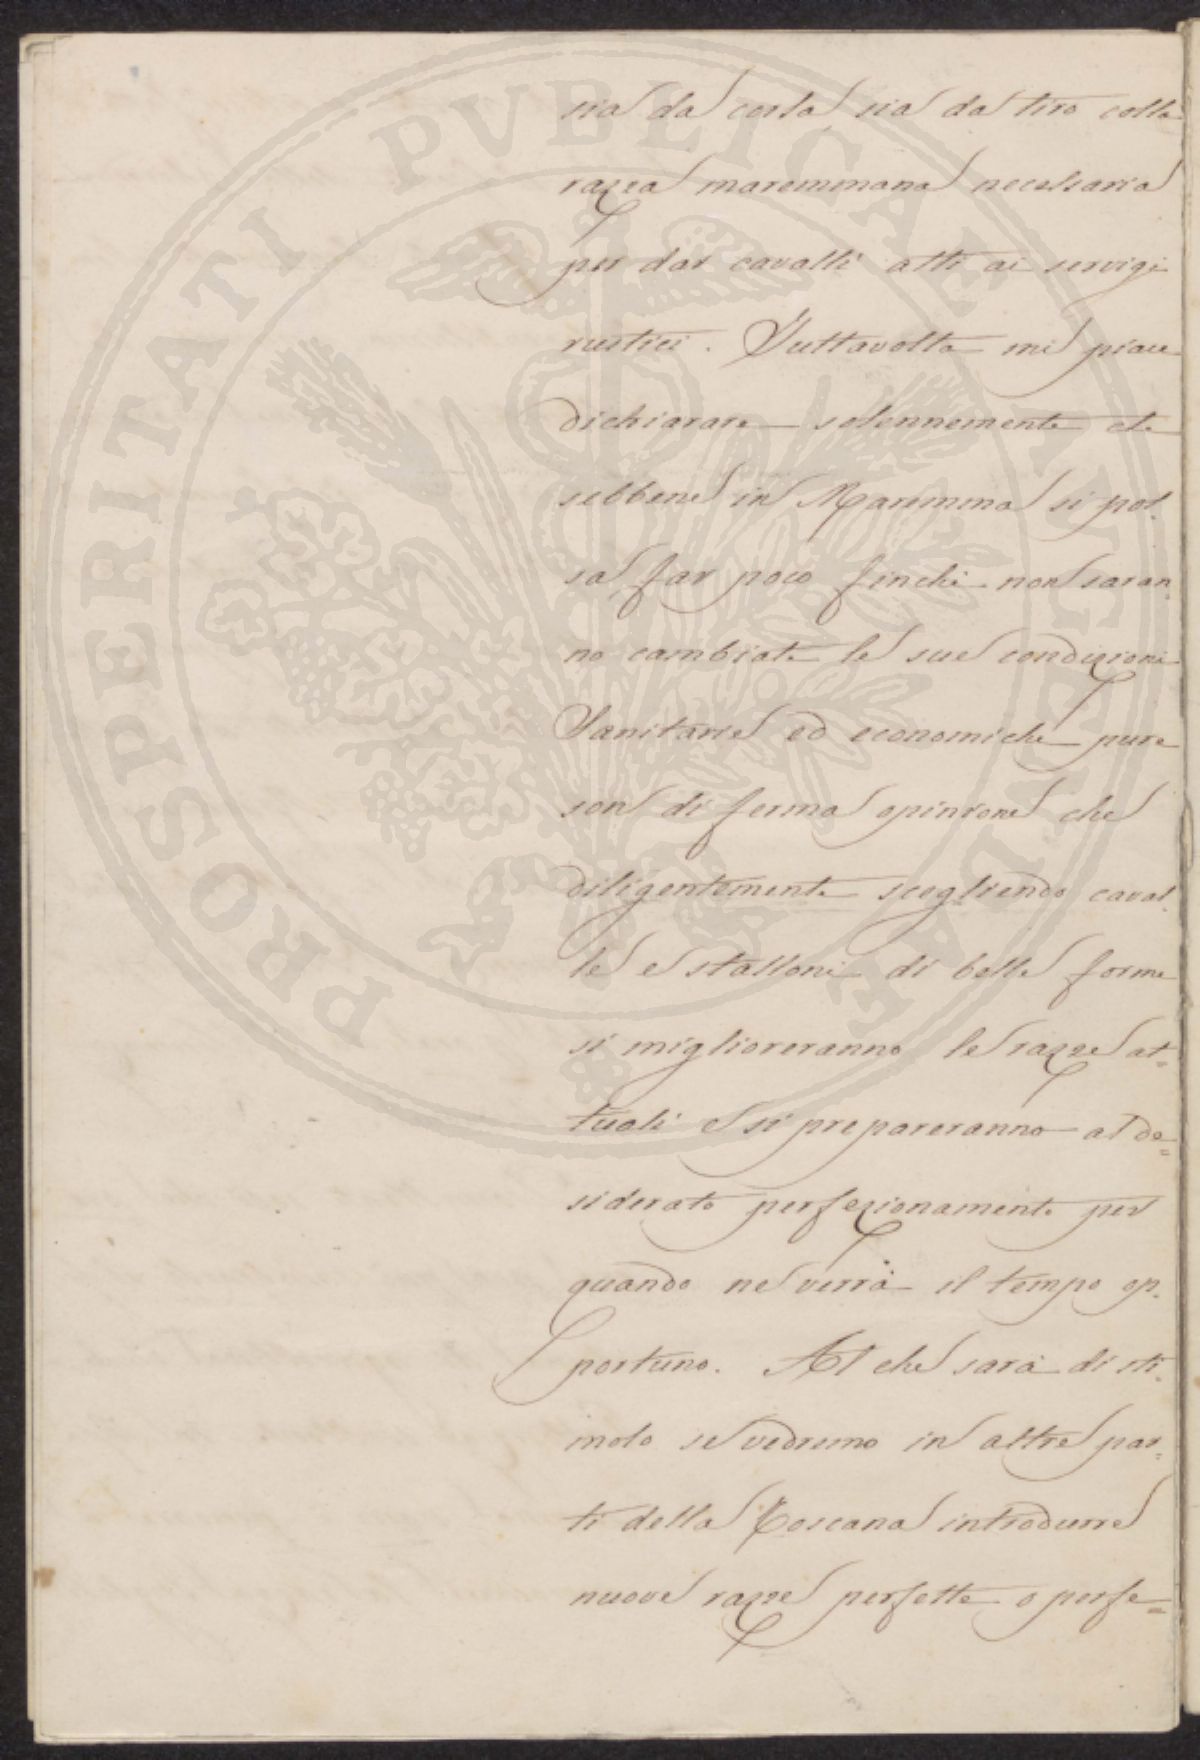 sia da corsa sia da tiro colla
razza maremmana necessaria
per dar cavalli atti ai servigi
rustici. Tuttavolta mi piace
dichiarare solennemente che
sebbene in Maremma si pos-
sa far poco finchè non saran-
no cambiate le sue condizioni
Sanitarie ed economiche pure
son di ferma opinione che
diligentemente scegliendo caval-
le e stalloni di belle forme
si miglioreranno le razze at=
tuali e si prepareranno al de=
siderato perfezionamento per
quando ne verrà il tempo op-
portuno. Al che sarà di sti-
molo se vedremo in altre par-
ti della Toscana introdurre
nuove razze perfette o perfe=
PROSPERITATI PVBLICAE AVGENDAE